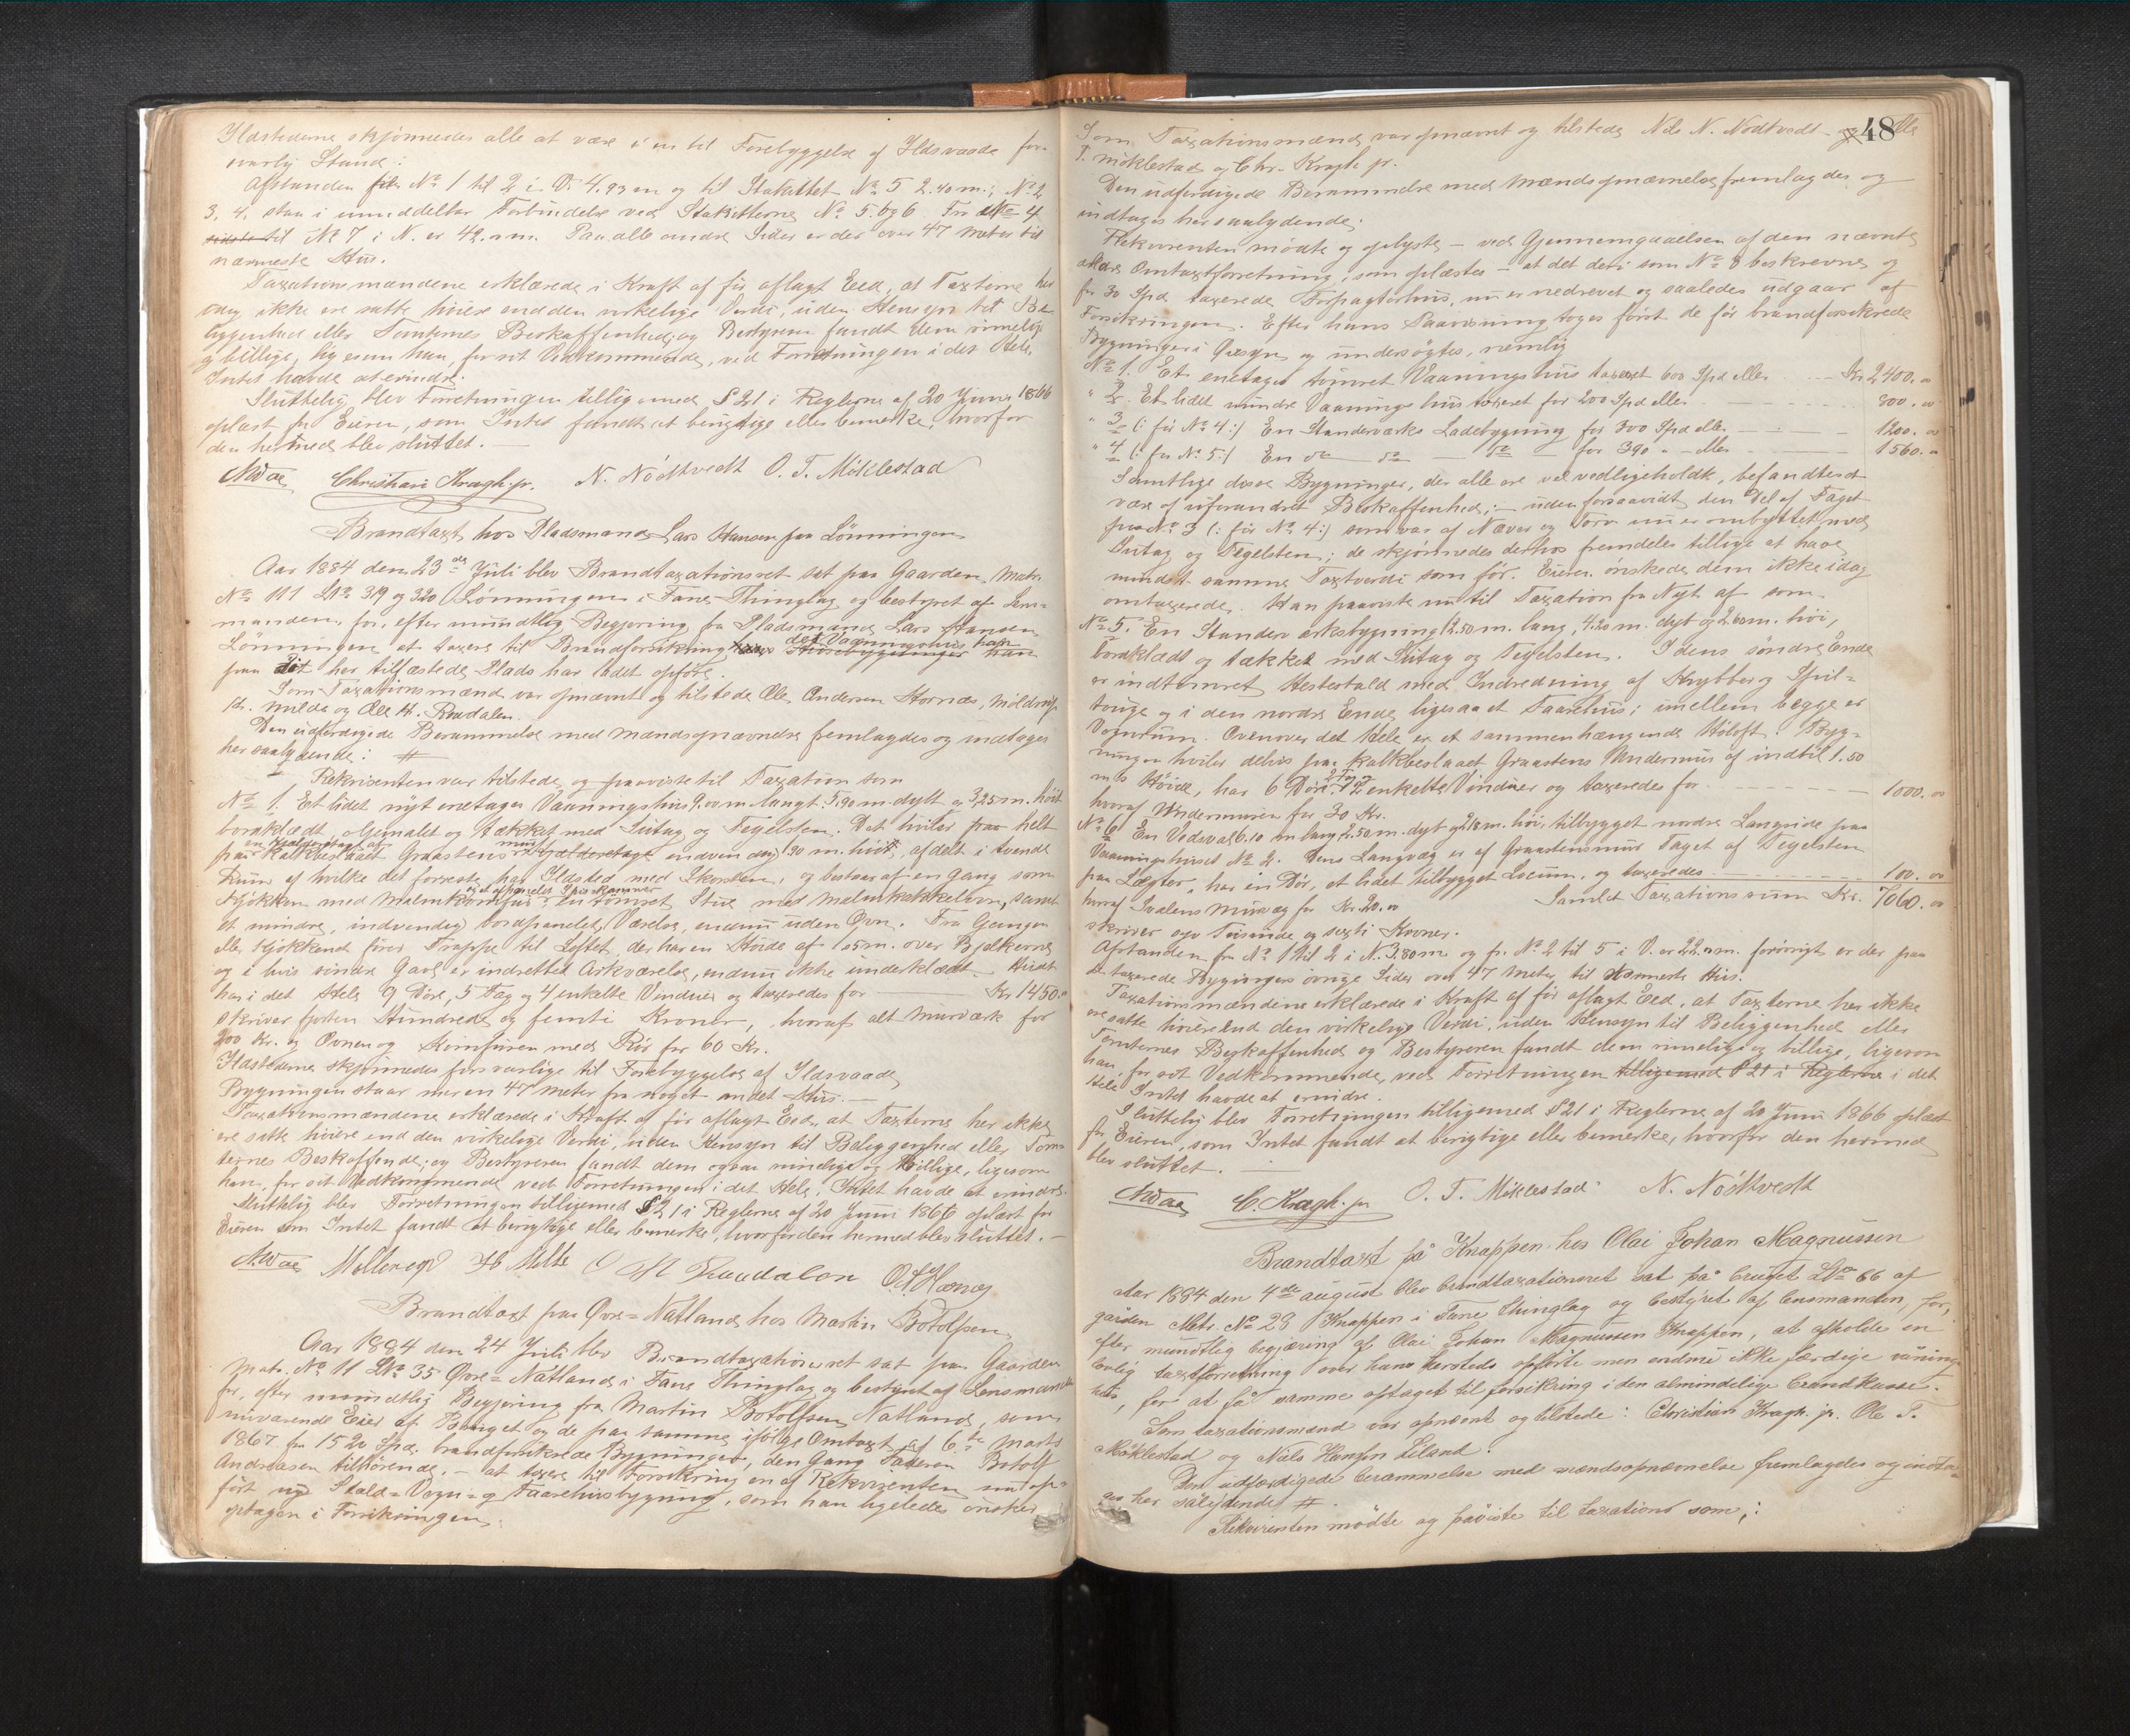 Ildstederne skjønnedes alle at være i en til Forebyggelse af Ildsvaade for-
svarlig Stand:
Afstanden fra No 1 til 2 i V. 4.93 m og til Stakittet No 5 2.40 m.; No 2
3. 4. staa i umiddelbar Forbindelse ved Stakitterne No 5. og 6. Fra No 4
sidste til No 7 i N. er 42.0 m. Paa alle andre Sider er der over 47 Meter til
nærmeste Hus.
Taxationsmændene erklærede i Kraft af før aflagt Eed, at Taxterne her
ikke ere satte høiere end den virkelige Verdi, uden Hensyn til Be-
liggenhed eller Tomternes Beskaffenhed, og Bestyreren fandt dem rimelige
og billige, ligesom han, for sit Vedkommende, ved Forretningen i det Hele,
Intet havde at erindre.
Sluttelig blev Forretningen tilligemed § 21 i Reglerne af 20 Juni 1866
oplæst for Eieren, som Intet fandt at berigtige eller bemerke, hvorfor
den hermed blev sluttet.
Christian Kragh jr. N. Nødtvedt O. T. Miklestad
Brandtaxt hos Pladsmand Lars Hansen paa Lønningen
Aar 1884 den 23de Juli blev Brandtaxationsret sat paa Gaarden Matr.
No 111 LNo 319 og 320 Lønningen i Fane Thinglag og bestyret af Lens-
manden, for, efter mundtlig Begjering fra Pladsmand Lars Hansen
Lønningen at taxere til Brandforsikring det Vaaningshus han
paa sit her tilfæstede Plads har ladet opføre.
Som Taxationsmænd var opnævnt og tilstede Ole Andersen Hornæs, Möldrup
H. Milde og Ole H. Raadalen.
Den udferdigede Berammelse med Mændsopnævnelse fremlagdes og indtages
her saalydende: #
Rekvirenten var tilstede og paaviste til Taxation som
No 1. Et lidet nyt enetages Vaaningshus 9.00 m langt 5.90 m. dybt og 3.25 m. høit
bordklædt, Gemalet og tækket med Sutag og Tegelsten. Det hviler paa helt
paa en Kjelderetage af kalkbeslaaet Graastensmur Kjelderetage endvendig 1.90 m. høit, afdelt i tvende
Rum af hvilke det forreste har Ildsted med Skorsten, og bestaar af en Gang som
Kjøkken med Malmkomfur og et afpanelet Spiskammer, en tømret Stue med Malmkakkelovn, samt
et mindre, indvendig bordpanelet Værelse, endnu uden Ovn. Fra Gangen
eller Kjøkkenet fører Trappe til Loftet, der har en Høide af 1.05 m. over Bjelkerne
og i hvis søndre Gavl er indrettet Arkværelse, endnu ikke underklædt. Huset
har i det Hele 9 Døre, 5 Fag og 4 enkelte Vinduer og taxeredes for Kr 1450.00
skriver fjorten Hundrede og femti Kroner, hvoraf alt Murværk for
200 Kr. og Ovnen og Komfuren med Rør for 60 Kr.
Ildstederne skjønnedes forsvarlige til Forebyggelse af Ildsvaade
Bygningen staar mer en 47 Meter fra noget andet Hus.
Taxationsmændene erklærede i Kraft af før aflagt Eed, at Taxterne her ikke
ere satte høiere end den virkelige Verdi, uden Hensyn til Beliggenhed eller Tom-
ternes Beskaffende; og Bestyreren fandt dem ogsaa rimelige og billige, ligesom
han, for sit Vedkommende, ved Forretningen i det Hele, Intet havde at erindre.
Sluttelig blev Forretningen tilligemed § 21 i Reglerne af 20 Juni 1866 oplæst for
Eieren som Intet fandt at berigtige eller bemerke, hvorfor den hermed blev sluttet.
Möllerup H Milde O H Raadalen O. A. Hornes
Brandtaxt paa Øvre-Natland hos Martin Botolfsen
Aar 1884 den 24 Juli blev Brandtaxationsret sat paa Gaarden
Matr. No 11 LNo 35 Øvre-Natland i Fane Thinglag og bestyret af Lensmanden
for, efter mundtlig Begjering fra Martin Botolfsen Natland, som
nuværende Eier af Bruget og de paa samme ifølge Omtaxt af 6te Marts
1867 for 1520 Spd. brandforsikrede Bygninger, den Gang Faderen Botolf
Andreasen tilhørende, - at taxere til Forsikring en af Rekvirenten nu op-
ført ny Stald-Vogn- og Faarehusbygning, som han ligeledes ønsker
optagen i Forsikringen.
48
Som Taxationsmænd var opnævnt og tilstede Nils N. Nødtvedt Ole
T. Miklestad og Chr. Kragh jr.
Den udferdigede Berammelse med Mandsopnævnelse fremlagdes og
indtages her saalydende:
Rekvirenten mødte og oplyste - ved Gjennemgaaelsen af den nævnte
ældre Omtaxtforretning, som oplæstes - at det deri som No 8 beskrevne og
for 30 Spd taxerede Forpagterhus, nu er nedrevet og saaledes udgaar af
Forsikringen. Efter hans Paavisning toges først de før brandforsikrede
Bygninger i Øiesyn og undersøgtes, nemlig
No 1. Et enetages tømret Vaaningshus taxeret 600 Spd eller Kr. 2400.00
" 2. Et lidet mindre Vaaningshus taxeret for 200 Spd eller 800.00
" 3 (: før No 4:) En Standerværks Ladebygning for 300 Spd eller 1200.00
" 4 (: før No 5:) En do do do for 390 " eller 1560.00
Samtlige disse Bygninger, der alle ere vel vedligeholdt, befandtes at
være af uforandret Beskaffenhed; - uden forsaavidt den Del af Taget
paa No 3 (: før No 4:) som var af Næver og Torv nu er ombyttet med
Sutag og Tegelsten; de skjønnedes derhos fremdeles tillige at have
mindst samme Taxtverdi som før. Eieren ønskede dem ikke idag
omtaxerede. Han paaviste nu til Taxation fra Nyt af som
No 5. En Standerværksbygning 12.50 m. lang, 4.20 m. dyb og 2.60 m. høi,
bordklædt og tækket med Sutag og Tegelsten. I dens søndre Ende
er indtømret Hestestald med Indredning af Krybbe og Spil-
touge og i den nordre Ende ligesaa et Faarehus; imellem begge er
Vognrum. Ovenover det Hele er et sammenhængende Høloft. Byg-
ningen hviler delvis paa kalkbeslaaet Graastens Undermur af indtil 1.50
m's Høide, har 6 Døre, 2 Fag og 12 enkelte Vinduer og taxeredes for 1000.00
hvoraf Undermuren for 30 Kr.
No 6 En Vedsval 6.10 m lang, 2.50 m. dyb og 2.18 m. høi, tilbygget nordre Langside paa
Vaaningshuset No 2. Dens Langvæg er af Graastensmur Taget af Tegelsten
paa Lægter, har en Dør, et lidet tilbygget Locum, og taxeredes 100.00
hvoraf Svalens Murvæg for Kr. 20.00 Samlet Taxationssum Kr. 7060.00
skriver syv Tusinde og sexti Kroner.
Afstanden fra No 1 til 2 i N. 3.80 m og fr. No 2 til 5 i V. er 22.0 m. forøvrigt er der paa
de taxerede Bygningers øvrige Sider over 47 Meter til nærmeste Hus.
Taxationsmændene erklærede i Kraft af før aflagt Eed, at Taxterne her ikke
ere satte høiere end den virkelige Verdi, uden Hensyn til Beliggenhed eller
Tomternes Beskaffenhed og Bestyreren fandt dem rimelige og billige, ligesom
han, for sit Vedkommende, ved Forretningen tilligemed § 21 i Reglerne i det
Hele Intet havde at erindre.
Sluttelig blev Forretningen tilligemed § 21 i Reglerne af 20 Juni 1866 oplæst
for Eieren, som Intet fandt at berigtige eller bemerke, hvorfor den hermed
blev sluttet.
C. Kragh jr O. T. Miklestad N. Nödtvedt
Brandtaxt på Knappen hos Olai Johan Magnussen
Aar 1884 den 4de august blev brandtaxationsret sat på bruget LNo 66 af
gården Matr. No 28 Knappen i Fane thinglag og bestyret af lensmanden, for,
efter mundtlig begjæring af Olai Johan Magnussen Knappen, at afholde en
lovlig taxtforretning over hans hersteds opførte men endnu ikke færdige vånings-
hus, for at få samme optaget til forsikring i den almindelige brandkasse.
Som taxationsmænd var opnævnt og tilstede: Christian Kragh jr. Ole T.
Miklestad og Nils Hansen Liland.
Den udfærdigede berammelse med mændsopnævnelse fremlagdes og indta-
ges her sålydende #.
Rekvirenten mødte og påviste til taxation som;: